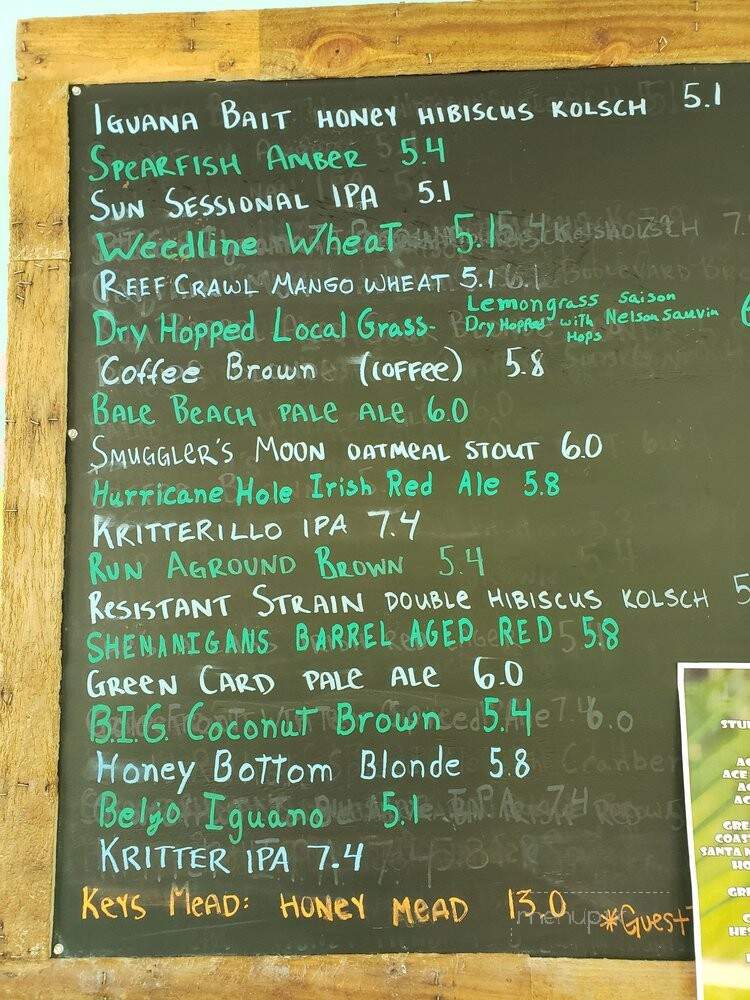 IGUANA BAIT HONEY HIBISCUS KOLSCH 5.1
SPEARFISH AMBER 5.4
SUN SESSIONAL IPA 5.1
Weedline Wheat 5.1
REEF CRAWL MANGO WHEAT 5.1
Dry Hopped Local Grass- Lemongrass Saison
Dry Hopped with Nelson Sauvin
Hops
Coffee Brown (COFFEE) 5.8
BALE BEACH PALE ALE 6.0
SMUGGLER'S MOON OATMEAL STOUT 6.0
Hurricane Hole Irish Red Ale 5.8
KRITTERILLO IPA 7.4
RUN AGROUND BROWN 5.4
RESISTANT STRAIN DOUBLE HIBISCUS KOLSCH 5
SHENANIGANS BARREL AGED RED 5.8
GREEN CARD PALE ALE 6.0
B.I.G. Coconut Brown 5.4
Honey Bottom Blonde 5.8
Beljo Iguano 5.1
KRITTER IPA 7.4
KEYS MEAD: HONEY MEAD 13.0
*Guest
menupix